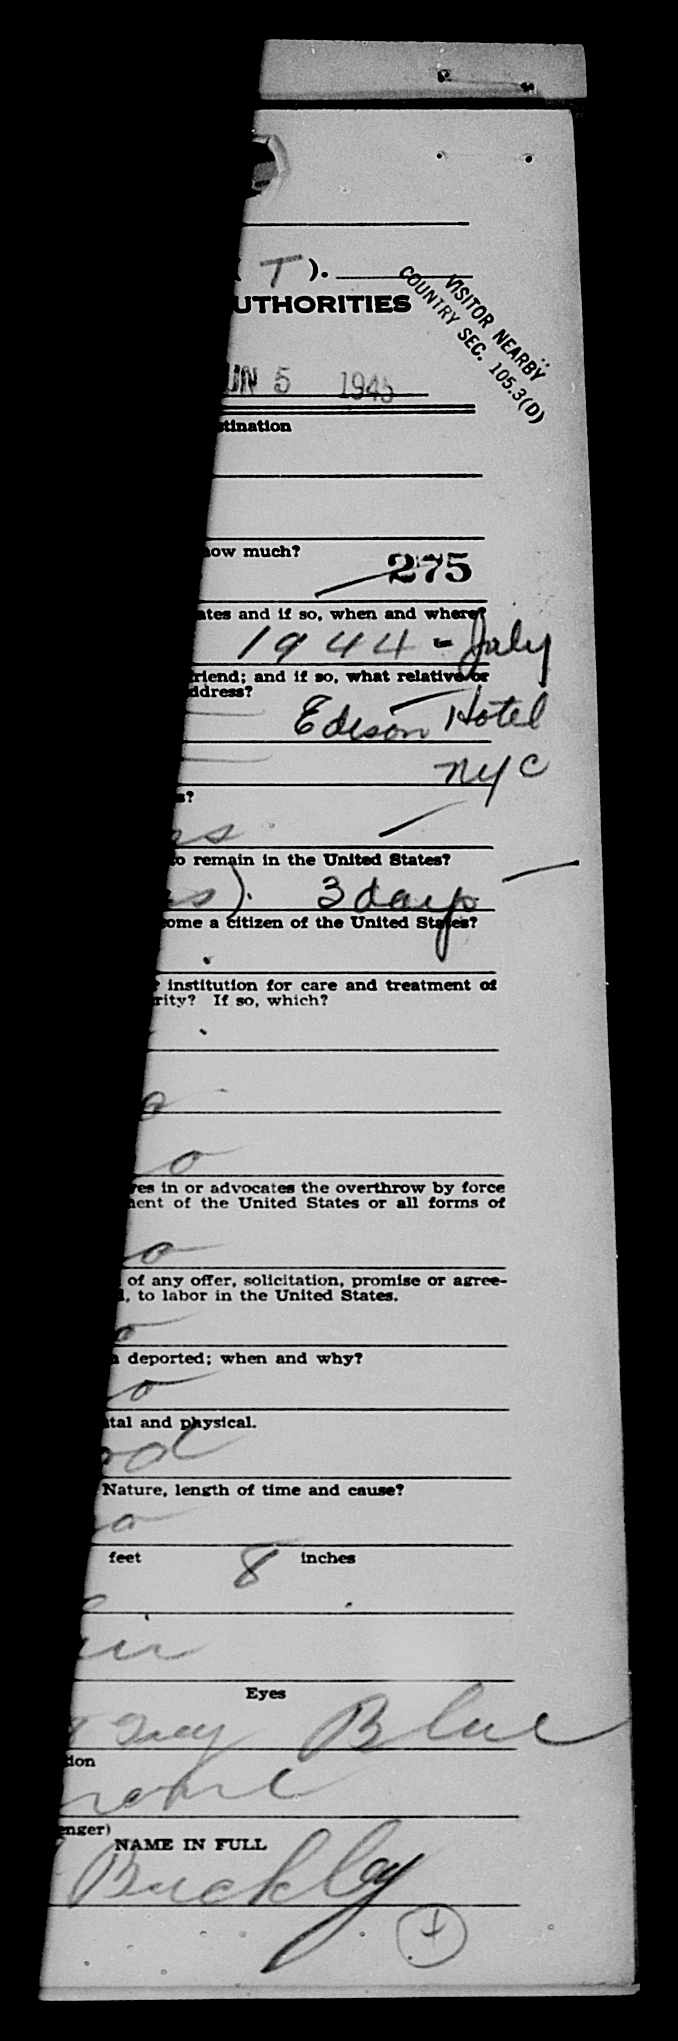 T ).
UTHORITIES
VISITOR NEARBY
COUNTRY SEC. 105.3(D)
UN 5 1945
stination
how much?
275
ates and if so, when and where?
1944 - July
riend; and if so, what relative or
ddress?
Edison Hotel
NYC
s?
to remain in the United States?
rs). 3 days
come a citizen of the United States?
r institution for care and treatment of
rity? If so, which?
o
o
ves in or advocates the overthrow by force
ment of the United States or all forms of
o
of any offer, solicitation, promise or agree-
d, to labor in the United States.
o
n deported; when and why?
o
tal and physical.
od
Nature, length of time and cause?
o
feet 8 inches
air
Eyes
Grey Blue
tion
none
enger)
NAME IN FULL
Buckley